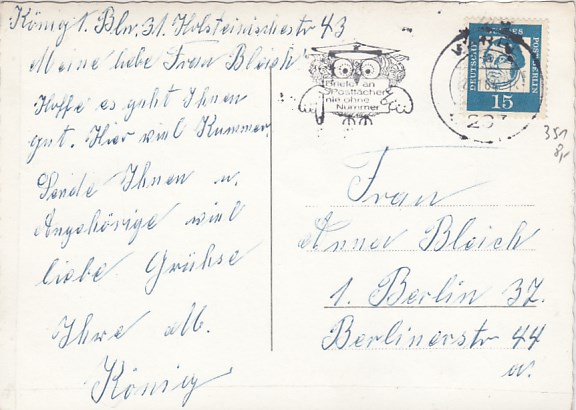 König 1. Bln. 31. Holsteinischestr 43
Meine liebe Frau Bleich
Hoffe es geht Ihnen
gut. Hier viel Kummer.
Sende Ihnen u.
Angehörige viel
liebe Grühse
Ihre alb.
König
Briefe an
Postfächer
nie ohne
Nummer
DEUTSCHE
POST BERLIN
15
351
8,-
Frau
Anna Bleich
1. Berlin 37.
Berlinerstr 44
a.